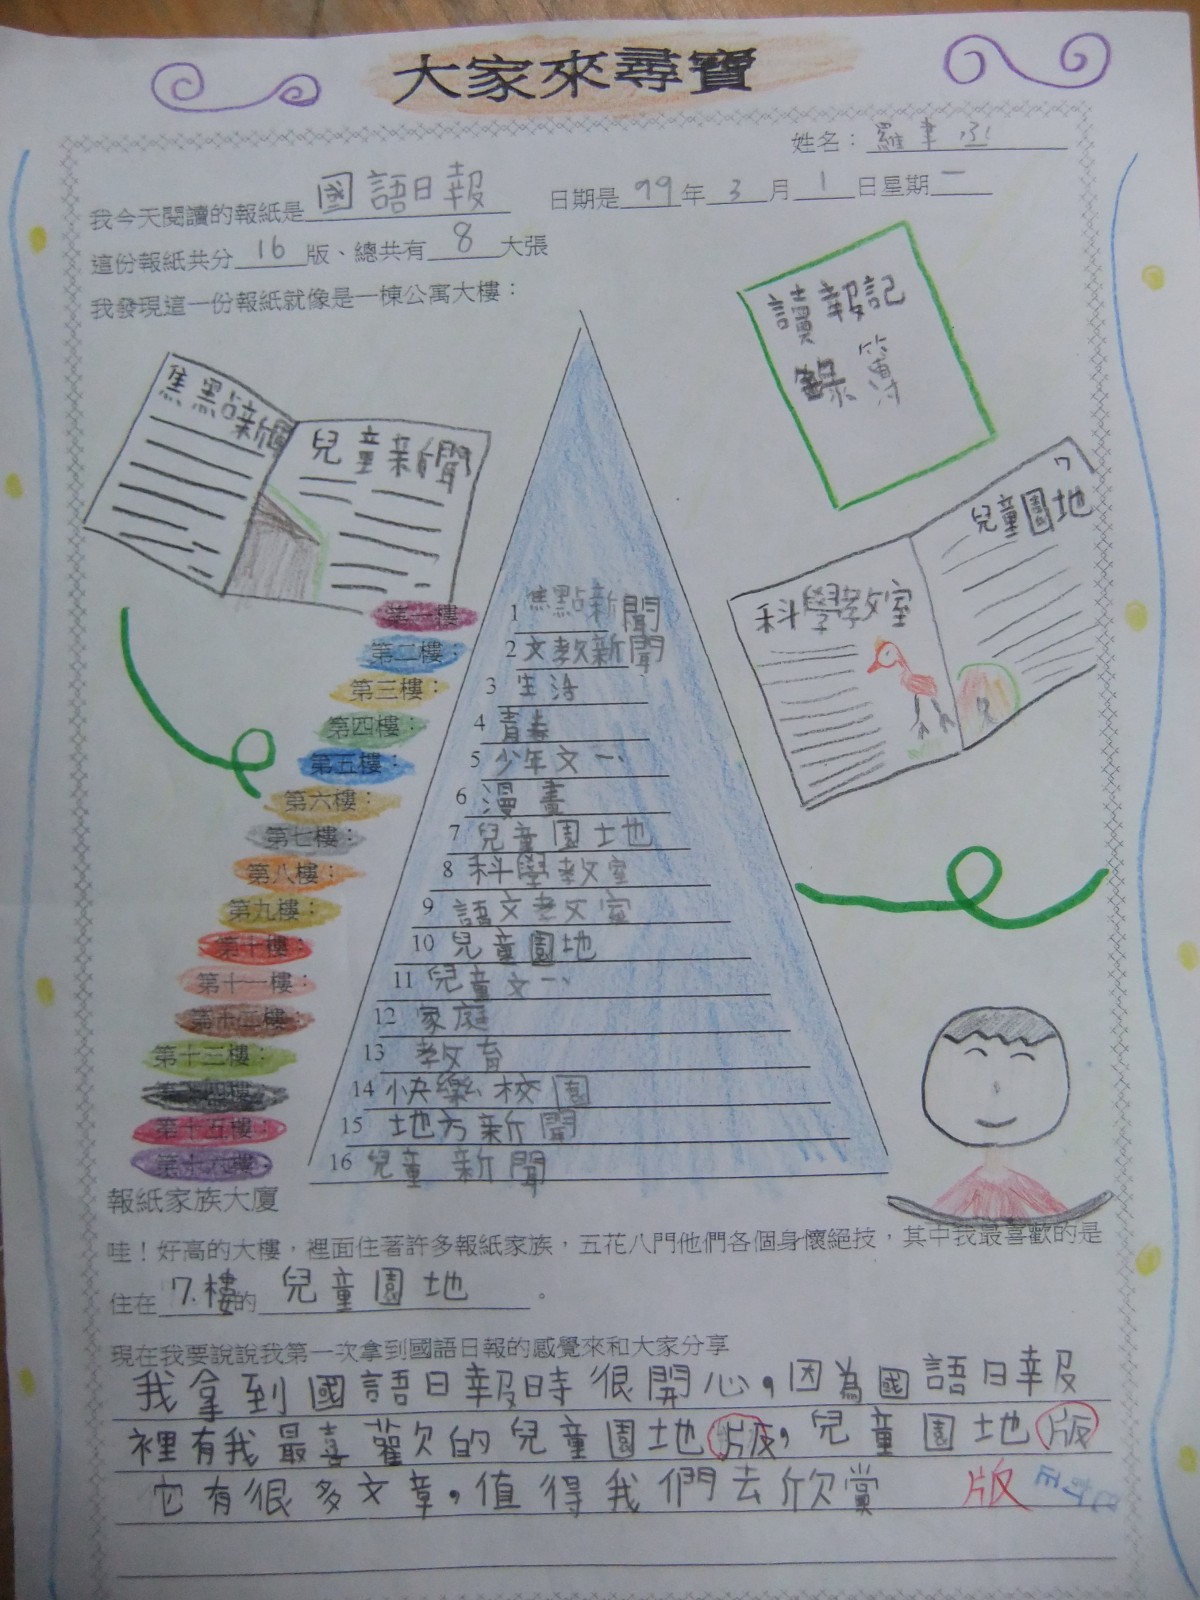 大家來尋寶
姓名：羅聿
我今天閱讀的報紙是國語日報 日期是99年3月1日星期一
這份報紙共分16版、總共有8大張
我發現這一份報紙就像是一棟公寓大樓：
讀報記
錄簿
焦點新聞
兒童新聞
7
兒童園地
科學教室
第一樓 1 焦點新聞
第二樓： 2 文教新聞
第三樓： 3 生活
第四樓： 4 青春
第五樓： 5 少年文一
第六樓： 6 漫畫
第七樓： 7 兒童園地
第八樓： 8 科學教室
第九樓： 9 語文教室
第十樓： 10 兒童園地
第十一樓： 11 兒童文一
第十二樓： 12 家庭
第十三樓： 13 教育
第十四樓： 14 快樂校園
第十五樓： 15 地方新聞
第十六樓： 16 兒童新聞
報紙家族大廈
哇！好高的大樓，裡面住著許多報紙家族，五花八門他們各個身懷絕技，其中我最喜歡的是
住在7樓的兒童園地。
現在我要說說我第一次拿到國語日報的感覺來和大家分享
我拿到國語日報時很開心，因為國語日報
裡有我最喜歡的兒童園地版，兒童園地版
它有很多文章，值得我們去欣賞 版